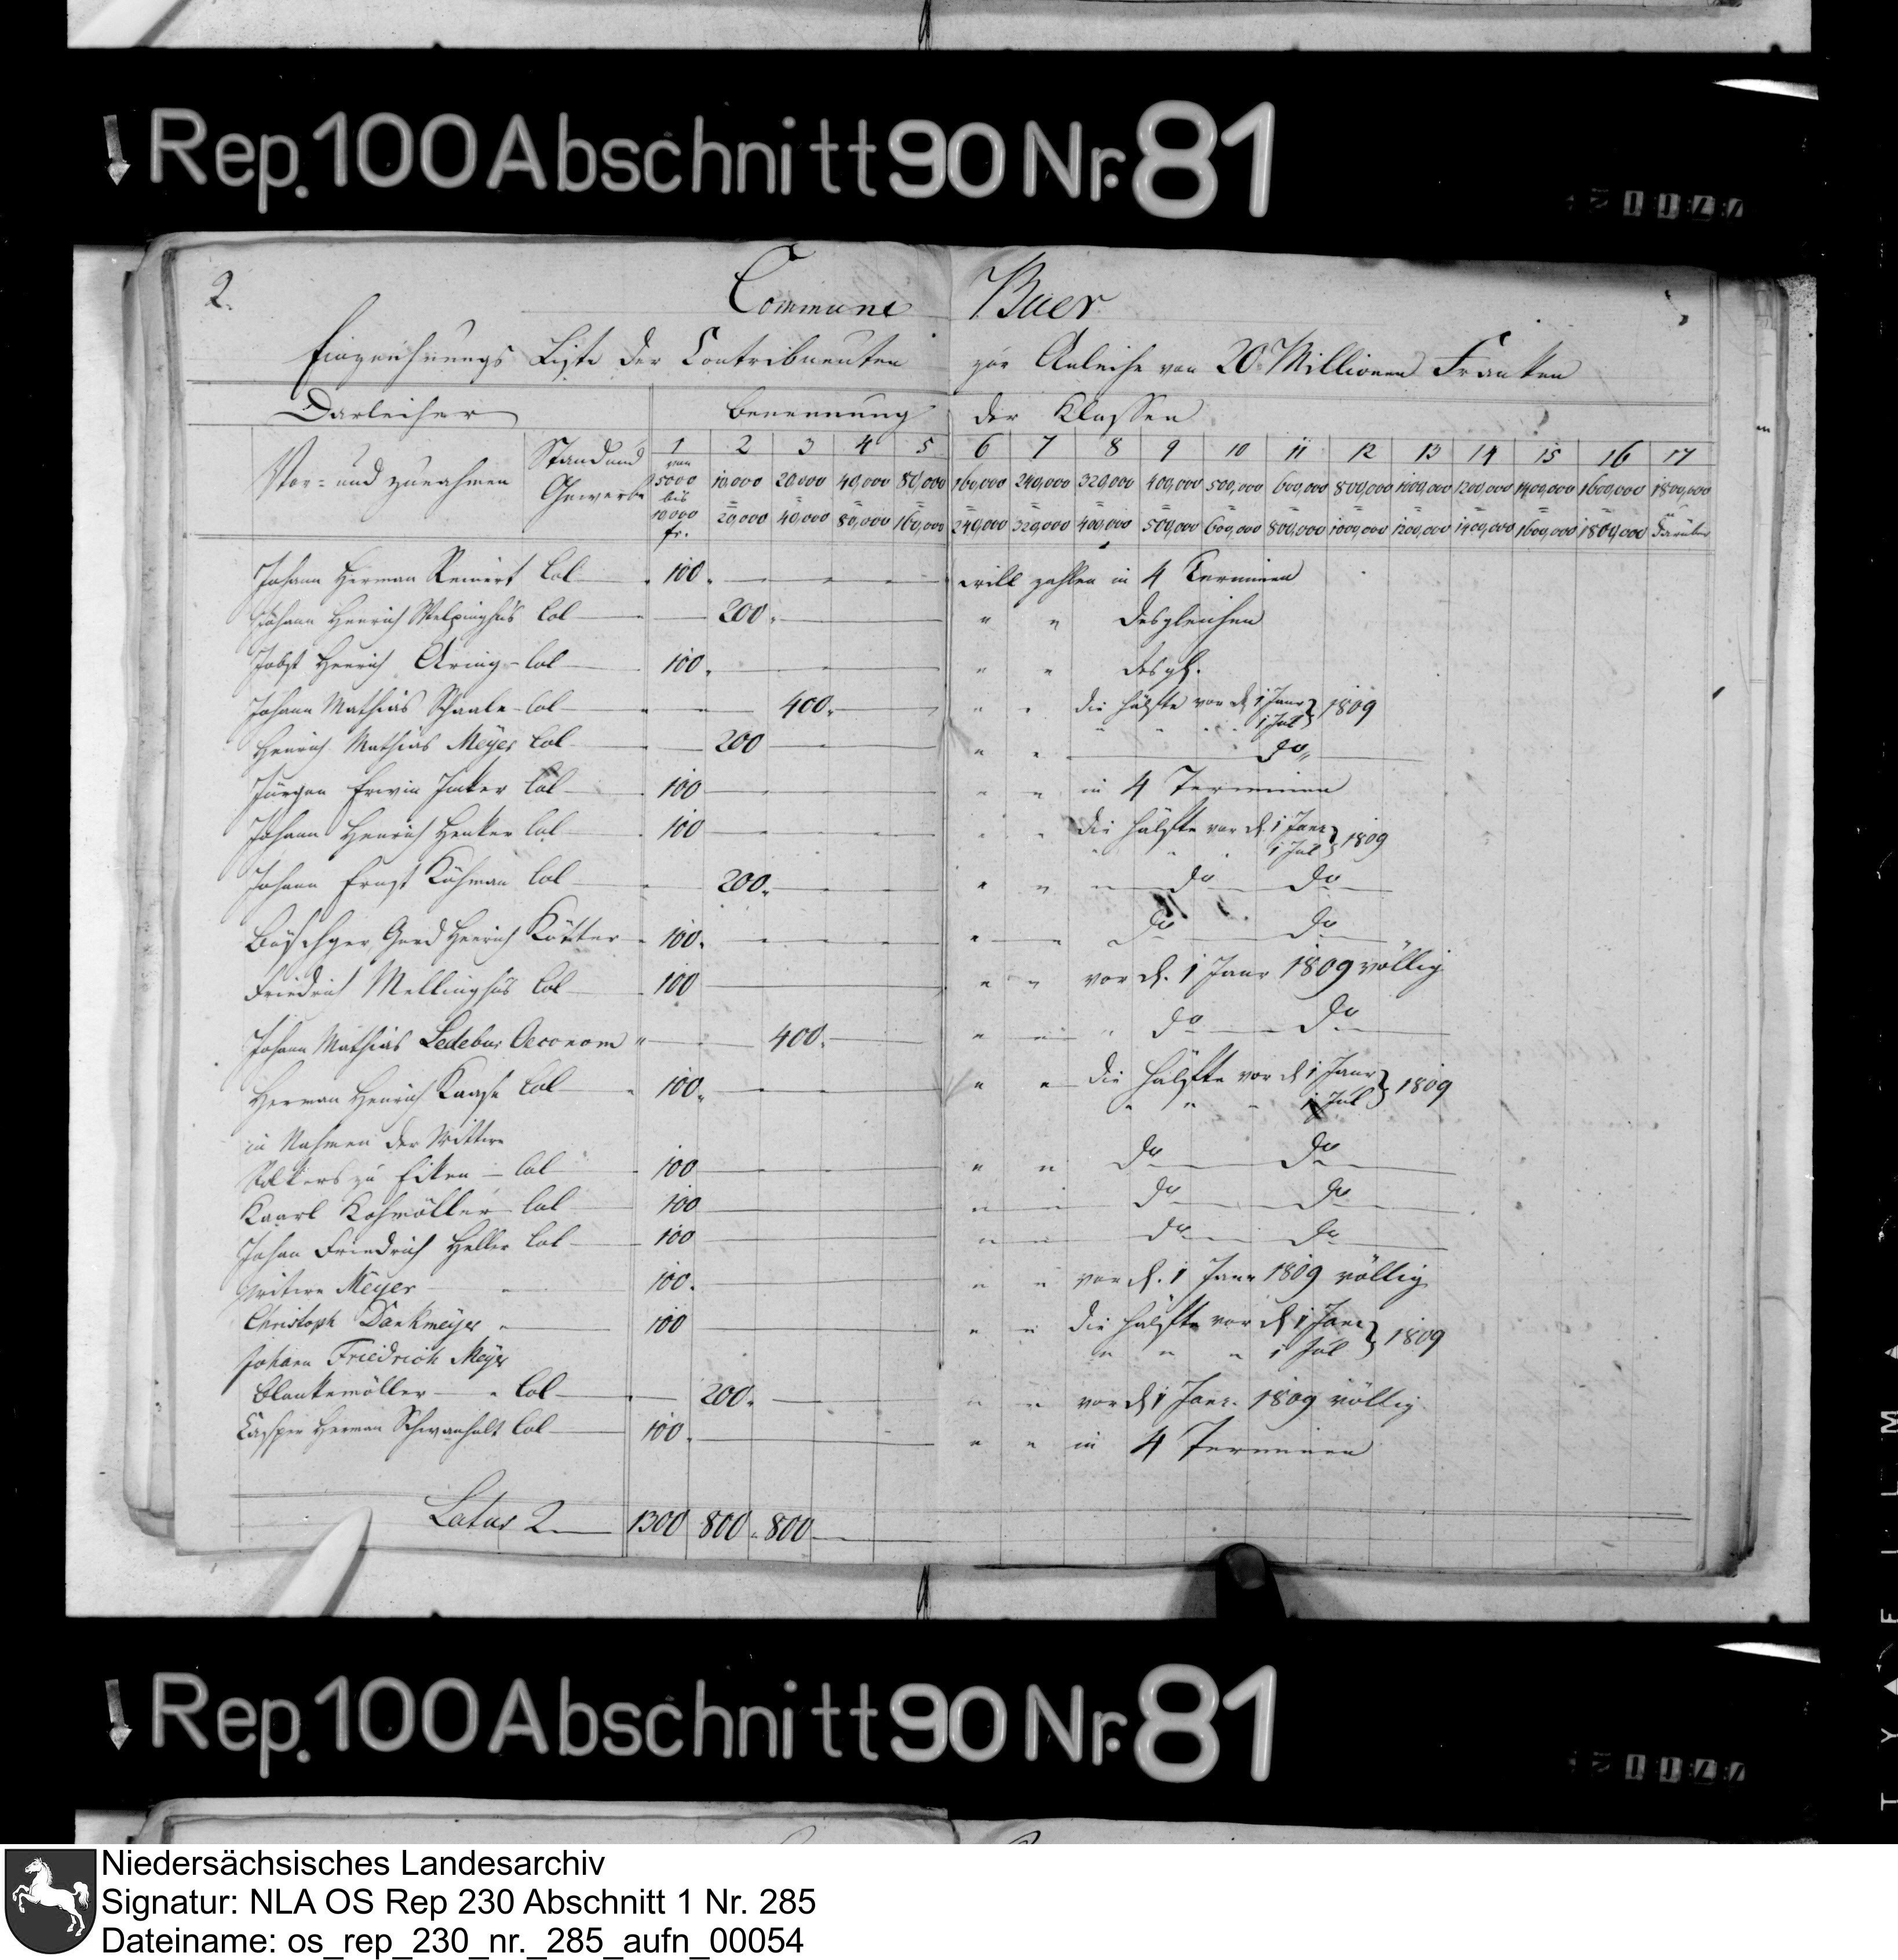 Rep. 100 Abschnitt 90 Nr. 81
2.
Commune Buer
Einzeichnungs Liste der Contribuenten zur Anleihe von 20 Millionen Franken
Darleiher Benennung der Klassen
Vor- und zunahmen Stand und Gewerbe
1 2 3 4 5 6 7 8 9 10 11 12 13 14 15 16 17
von 5000 bis 10000 fr. 10,000 = 20,000 20,000 = 40,000 40,000 = 80,000 80,000 = 160,000 160,000 = 240,000 240,000 = 320,000 320,000 = 400,000 400,000 = 500,000 500,000 = 600,000 600,000 = 800,000 800,000 = 1000,000 1000,000 = 1200,000 1200,000 = 1400,000 1400,000 = 1600,000 1600,000 = 1800,000 1800,000 = darüber
Johann Herman Reinert Col 100. will zahlen in 4 Terminen
Johann Henrich Welpinghus Col 200. " " desgleichen
Jobst Henrich Aring Col 100. " " desgl.
Johann Mathias Schaale Col 400. " " die Hälfte vor d. 1 Janr 1 Jul } 1809
Henrich Mathias Meyer Col 200 " " do
Jürgen Erwin Imker Col 100 " " in 4 Terminen
Johann Henrich Henker Col 100 " " die Hälfte vor d. 1 Janr 1 Jul } 1809
Johann Ernst Kühman Col 200. " " " do do
Gerd Henrich Kötter 100. " " do do
Friedrich Mellinghus Col 100 " " vor d. 1 Janr 1809 völlig
Johann Mathias Ledebur Oeconom " 400. " " " do do
Herman Henrich Kaase Col 100. " " die Hälfte vor d 1 Janr 1 Jul } 1809
in Nahmen der Wittwe
zu Eiken Col 100 " " do do
Kaarl Kohmöller Col 100 " " do do
Johan Friedrich Heller Col 100 " " do do
Wittwe Meyer 100. " " vor d. 1 Janr 1809 völlig
Christoph Dankmeyer " 100 " " die Hälfte vor d 1 Janr " " " 1 Jul } 1809
Johann Friedrich Meyer
Blankemöller " Col 200. " " vor d 1 Janr. 1809 völlig
Casper Herman Schwanholt Col 100. " " in 4 Terminen
Latus 2 1300 800 800
Rep. 100 Abschnitt 90 Nr. 81
Niedersächsisches Landesarchiv
Signatur: NLA OS Rep 230 Abschnitt 1 Nr. 285
Dateiname: os_rep_230_nr._285_aufn_00054